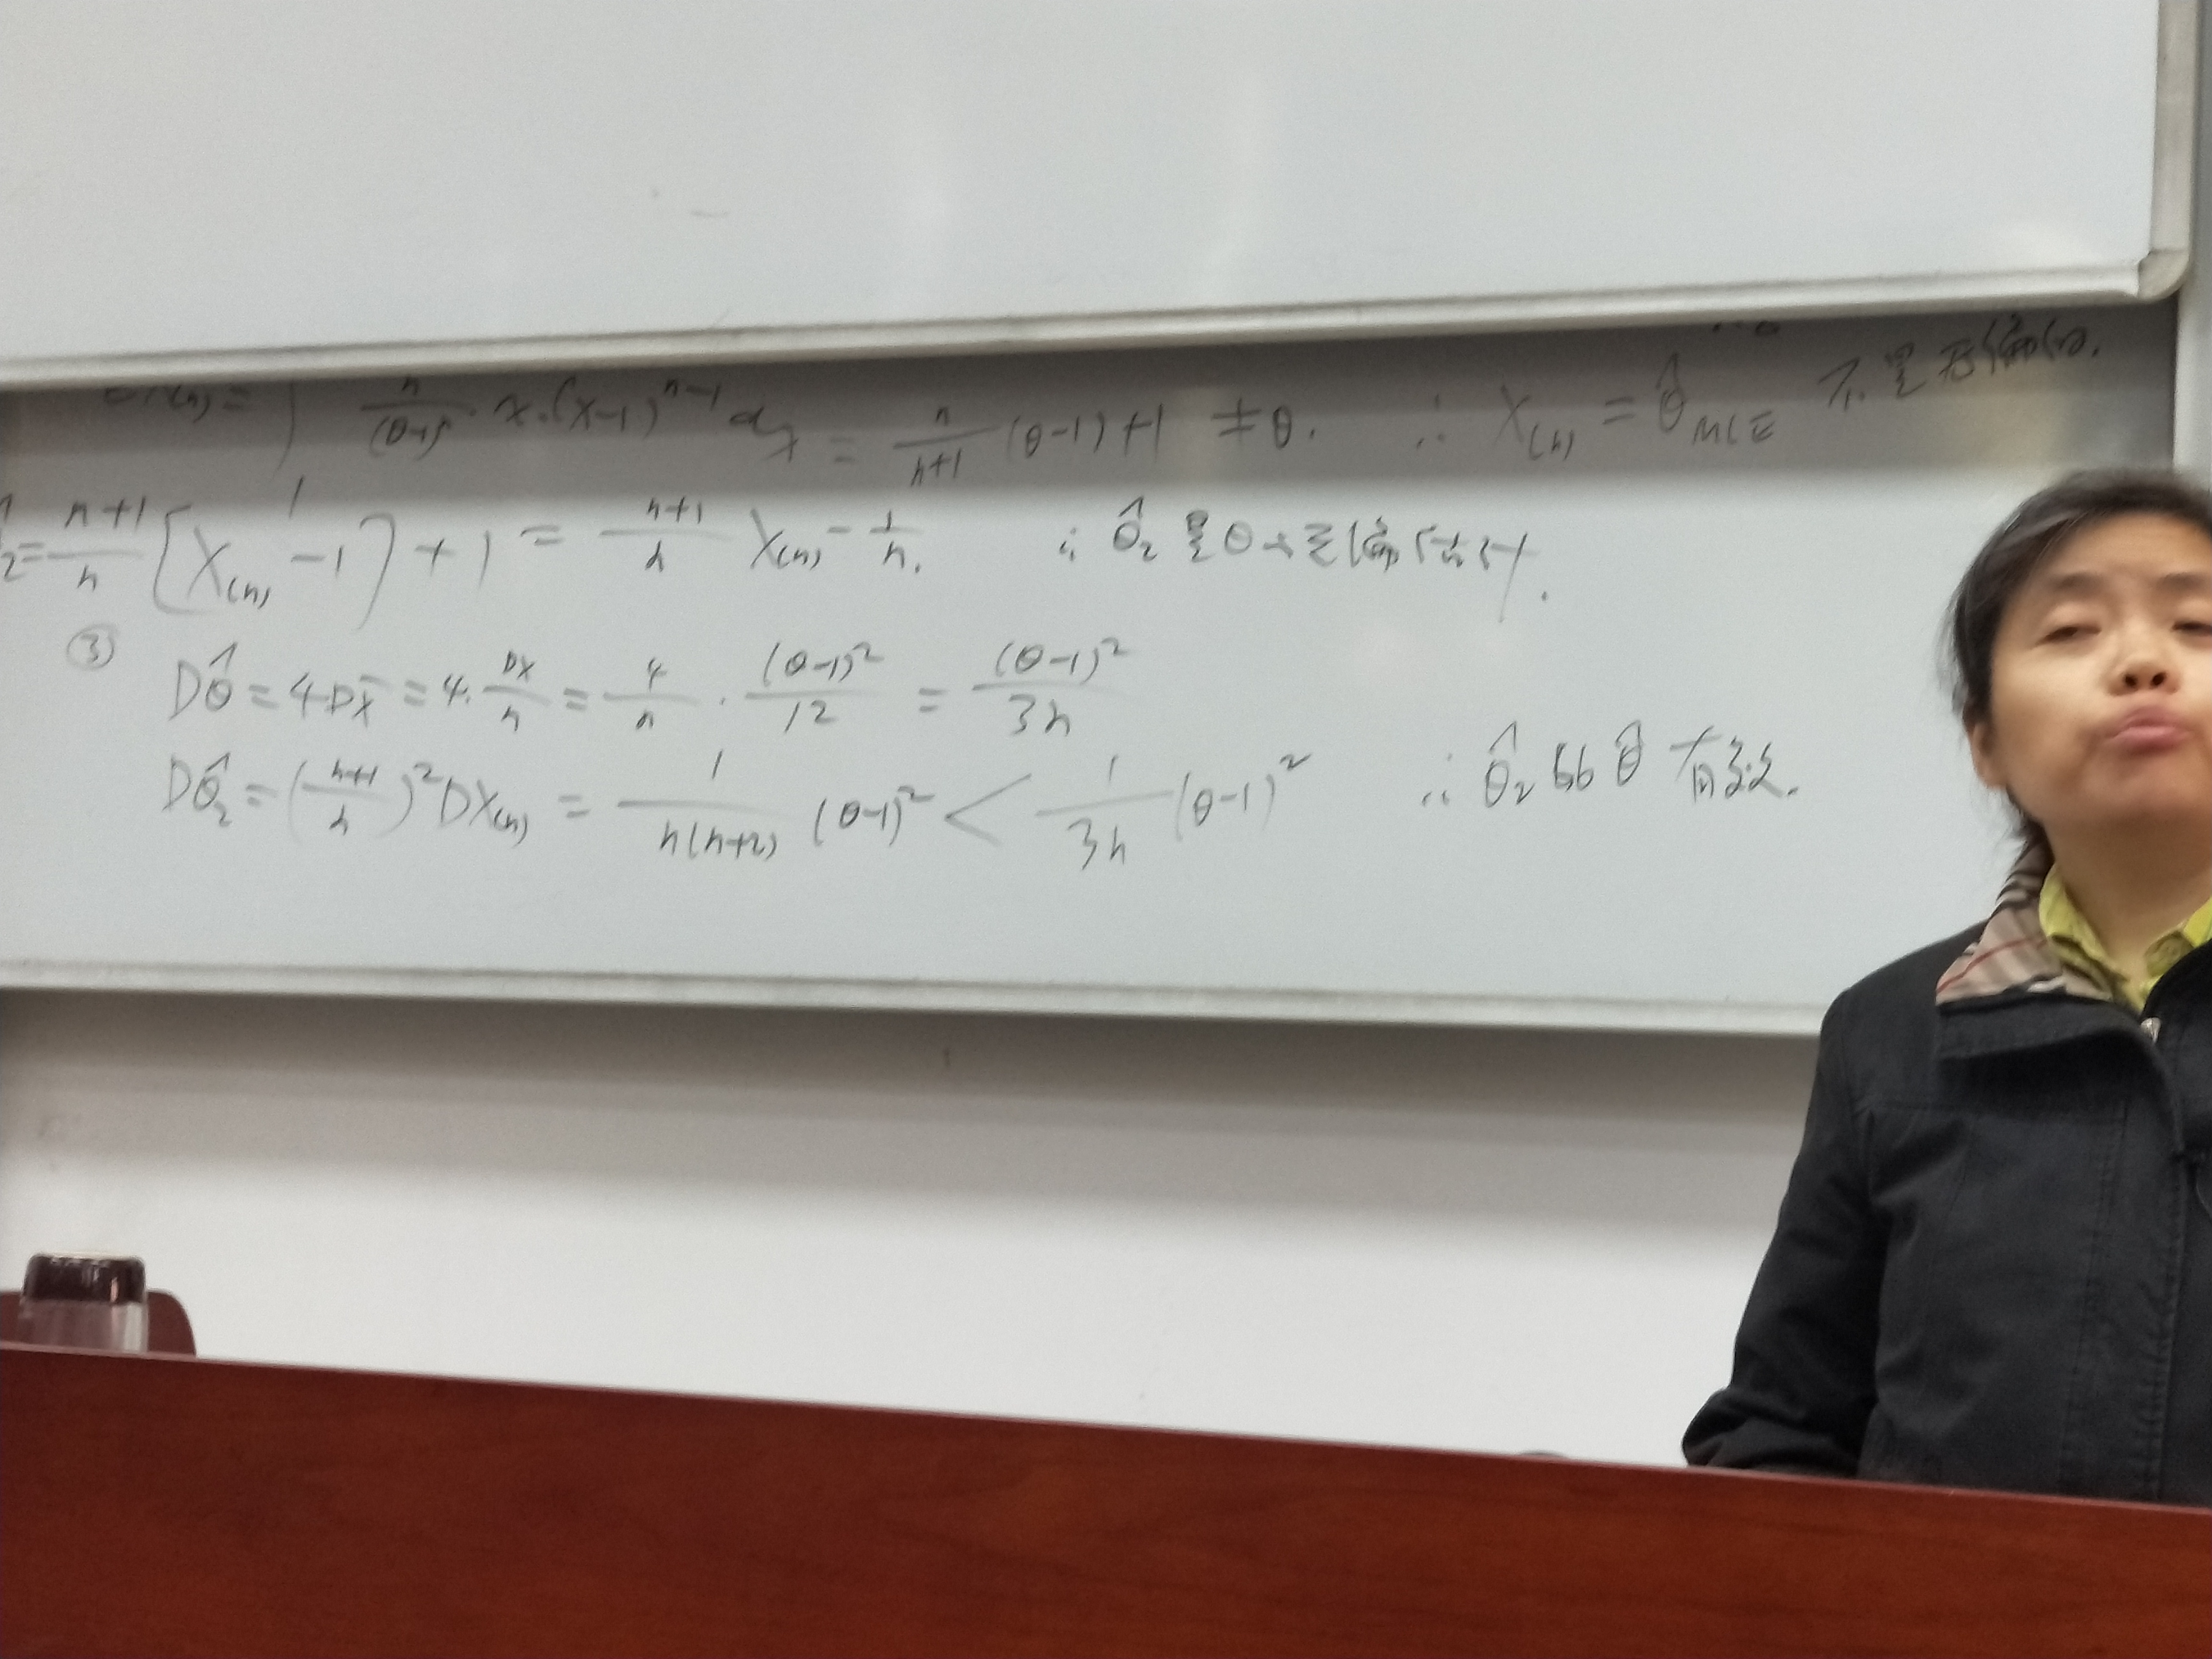 ∫ n/(θ-1)ⁿ · x·(x-1)ⁿ⁻¹ dx = n/(n+1) (θ-1)+1 ≠ θ. ∴ X₍ₙ₎ = θ̂_MLE 不是无偏的.
₂ = (n+1)/n [X₍ₙ₎ - 1] + 1 = (n+1)/n X₍ₙ₎ - 1/n. ∴ θ̂₂ 是θ的无偏估计.
③ Dθ̂ = 4DX̄ = 4·DX/n = 4/n · (θ-1)²/12 = (θ-1)²/3n
Dθ̂₂ = ((n+1)/n)² DX₍ₙ₎ = 1/(n(n+2)) (θ-1)² < 1/3n (θ-1)² ∴ θ̂₂ 比 θ̂ 有效.